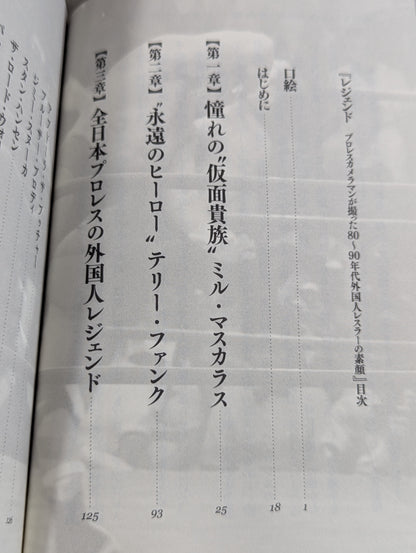 『レジェンド プロレスカメラマンが撮った80〜90年代外国人レスラーの素顔』目次
口絵 1
はじめに 18
【第一章】憧れの〝仮面貴族〟ミル・マスカラス 25
【第二章】〝永遠のヒーロー〟テリー・ファンク 93
【第三章】全日本プロレスの外国人レジェンド 125
スタン・ハンセン